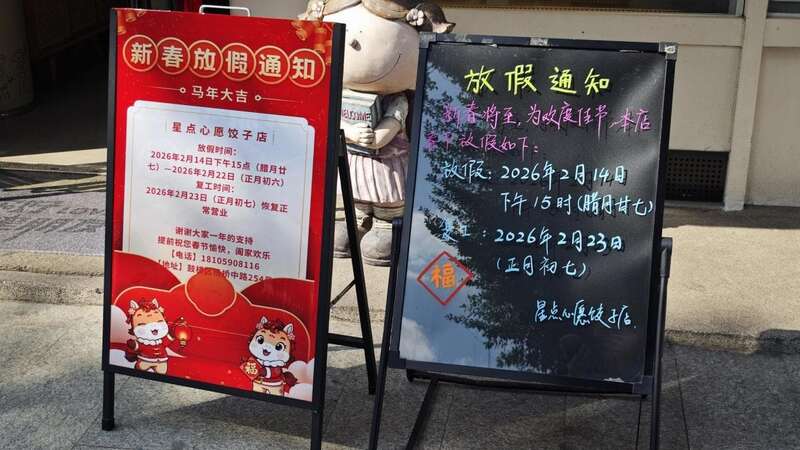 新春放假通知
马年大吉
星点心愿饺子店
放假时间：
2026年2月14日下午15点（腊月廿
七）—2026年2月22日（正月初六）
复工时间：
2026年2月23日（正月初七）恢复正
常营业
谢谢大家一年的支持
提前祝您春节愉快，阖家欢乐
【电话】18105908116
【地址】鼓楼区 桥中路254
福
WELCOME
放假通知
新春将至，为欢度佳节，本店
春节放假如下：
放假：2026年2月14日
下午15时（腊月廿七）
复工：2026年2月23日
（正月初七）
福
星点心愿饺子店